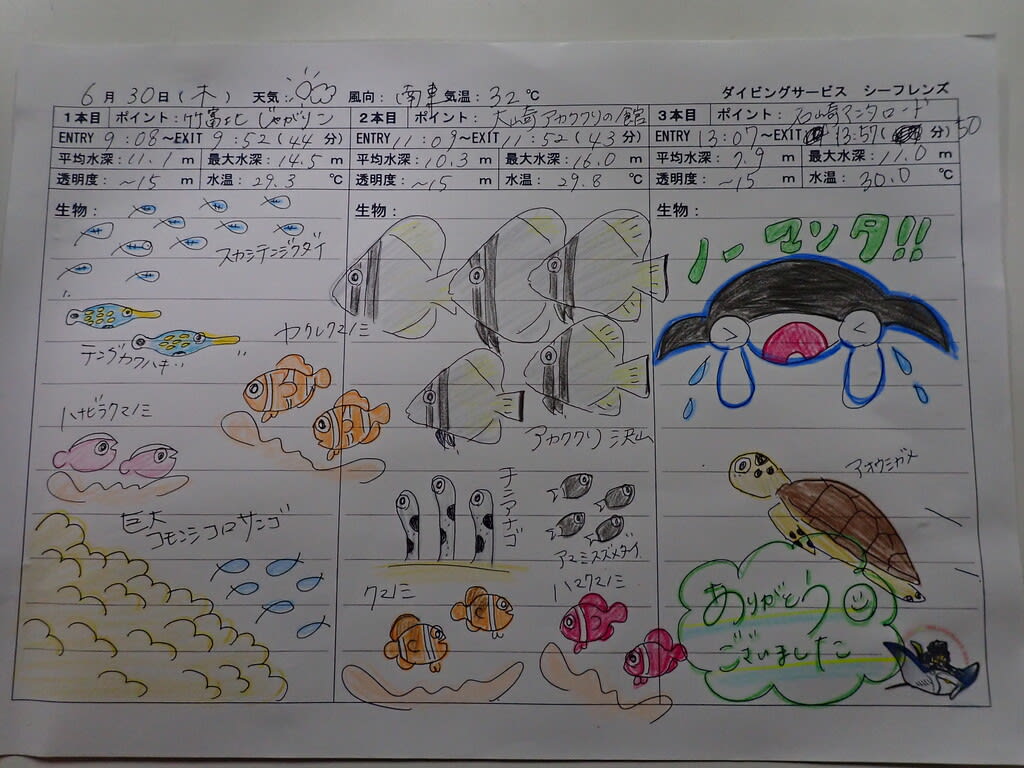 6月30日(木) 天気: 風向:南東 気温:32℃ ダイビングサービス シーフレンズ
1本目 ポイント:竹富北 じゃがりン
ENTRY 9:08~EXIT 9:52(44分)
平均水深:11.1m 最大水深:14.5m
透明度:~15m 水温:29.3℃
生物:
スカシテンジクダイ
テングカワハギ
ヤクレクマノミ
ハナビラクマノミ
巨大
コモンシコロサンゴ
2本目 ポイント:大崎アカククリの館
ENTRY 11:09~EXIT 11:52(43分)
平均水深:10.3m 最大水深:16.0m
透明度:~15m 水温:29.8℃
生物:
アカククリ 沢山
チンアナゴ
アマミスズメダイ
クマノミ
ハマクマノミ
3本目 ポイント:石崎マンタロード
ENTRY 13:07~EXIT 13:57(50分)
平均水深:7.9m 最大水深:11.0m
透明度:~15m 水温:30.0℃
生物:
ノーマンタ!!
アオウミガメ
ありがとう
ございました